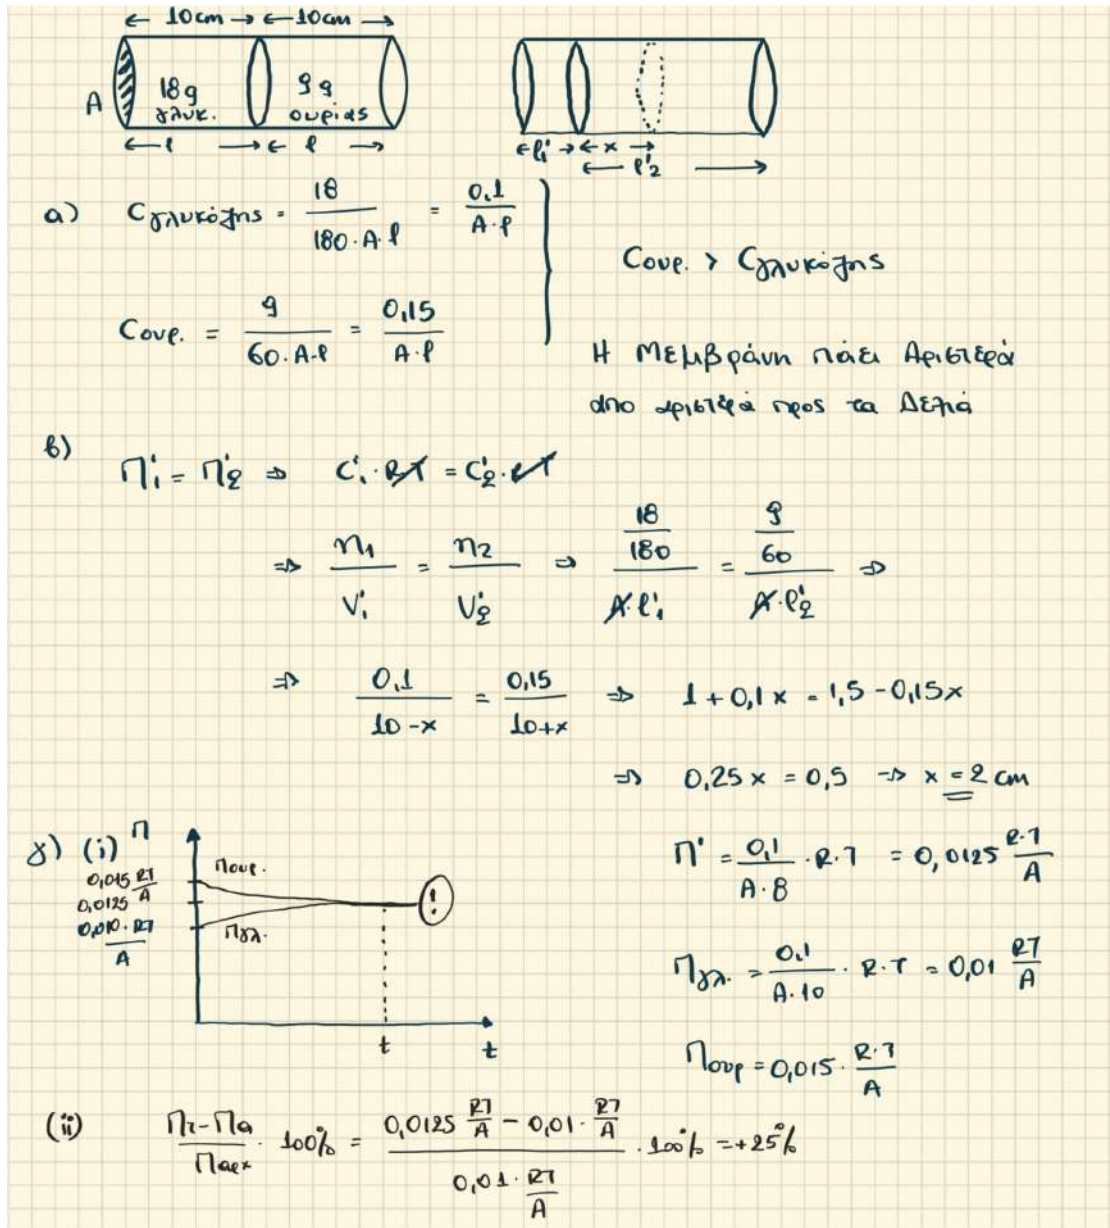 ← 10cm → ← 10cm →
A
18g
γλυκ.
9g
ουρίας
← l → ← l →
← l'₁ → ← x →
← l'₂ →
α) Cγλυκόζης = 18/(180·A·l) = 0,1/(A·l)
Cουρ. > Cγλυκόζης
Cουρ. = 9/(60·A·l) = 0,15/(A·l)
Η Μεμβράνη πάει Αριστερά
από αριστερά προς τα Δεξιά
β) Π'₁ = Π'₂ ⇒ C'₁·RT = C'₂·RT
⇒ n₁/V'₁ = n₂/V'₂ ⇒ (18/180)/(A·l'₁) = (9/60)/(A·l'₂) ⇒
⇒ 0,1/(10-x) = 0,15/(10+x) ⇒ 1+0,1x = 1,5-0,15x
⇒ 0,25x = 0,5 → x = 2 cm
γ) (i) Π
0,015 RT/A
0,0125
0,010·RT/A
Πουρ.
Πγλ.
!
t
t
Π' = 0,1/(A·8) · R·T = 0,0125 R·T/A
Πγλ. = 0,1/(A·10) · R·T = 0,01 RT/A
Πουρ = 0,015 · R·T/A
(ii) (Πτ-Πα)/Παρχ · 100% = (0,0125 RT/A - 0,01·RT/A)/(0,01·RT/A) · 100% = +25%